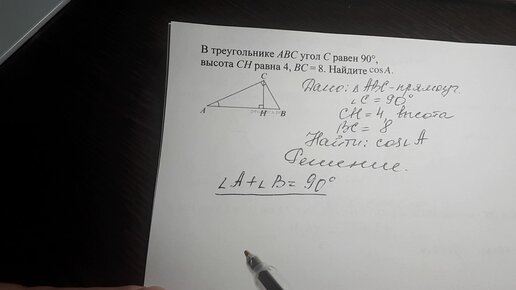 В треугольнике ABC угол C равен 90°,
высота CH равна 4, BC = 8. Найдите cos A.
C
A
H
B
Дано: △ ABC - прямоуг.
∠C = 90°
CH = 4, высота
BC = 8
Найти: cos∠A
Решение.
∠A + ∠B = 90°